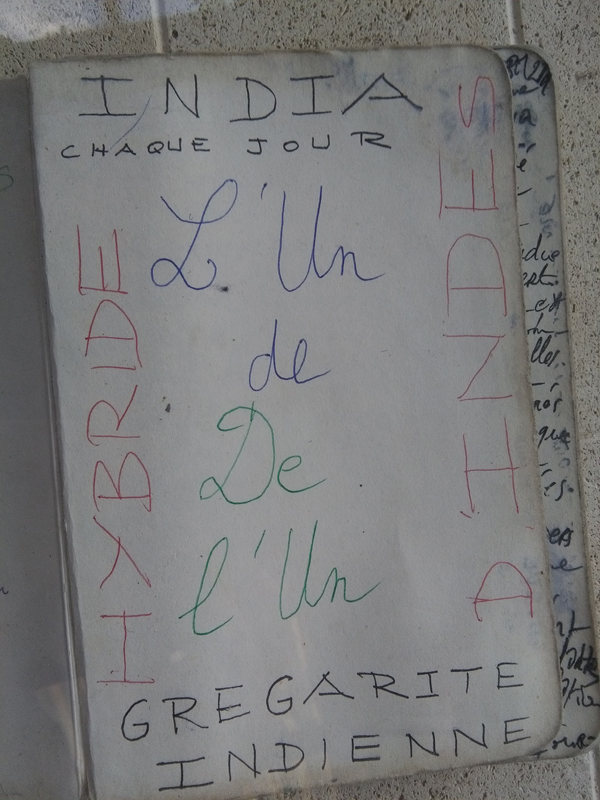 INDIA
CHAQUE JOUR
HYBRIDE
L'Un
de
De
l'Un
D'INDES
GREGARITE
INDIENNE